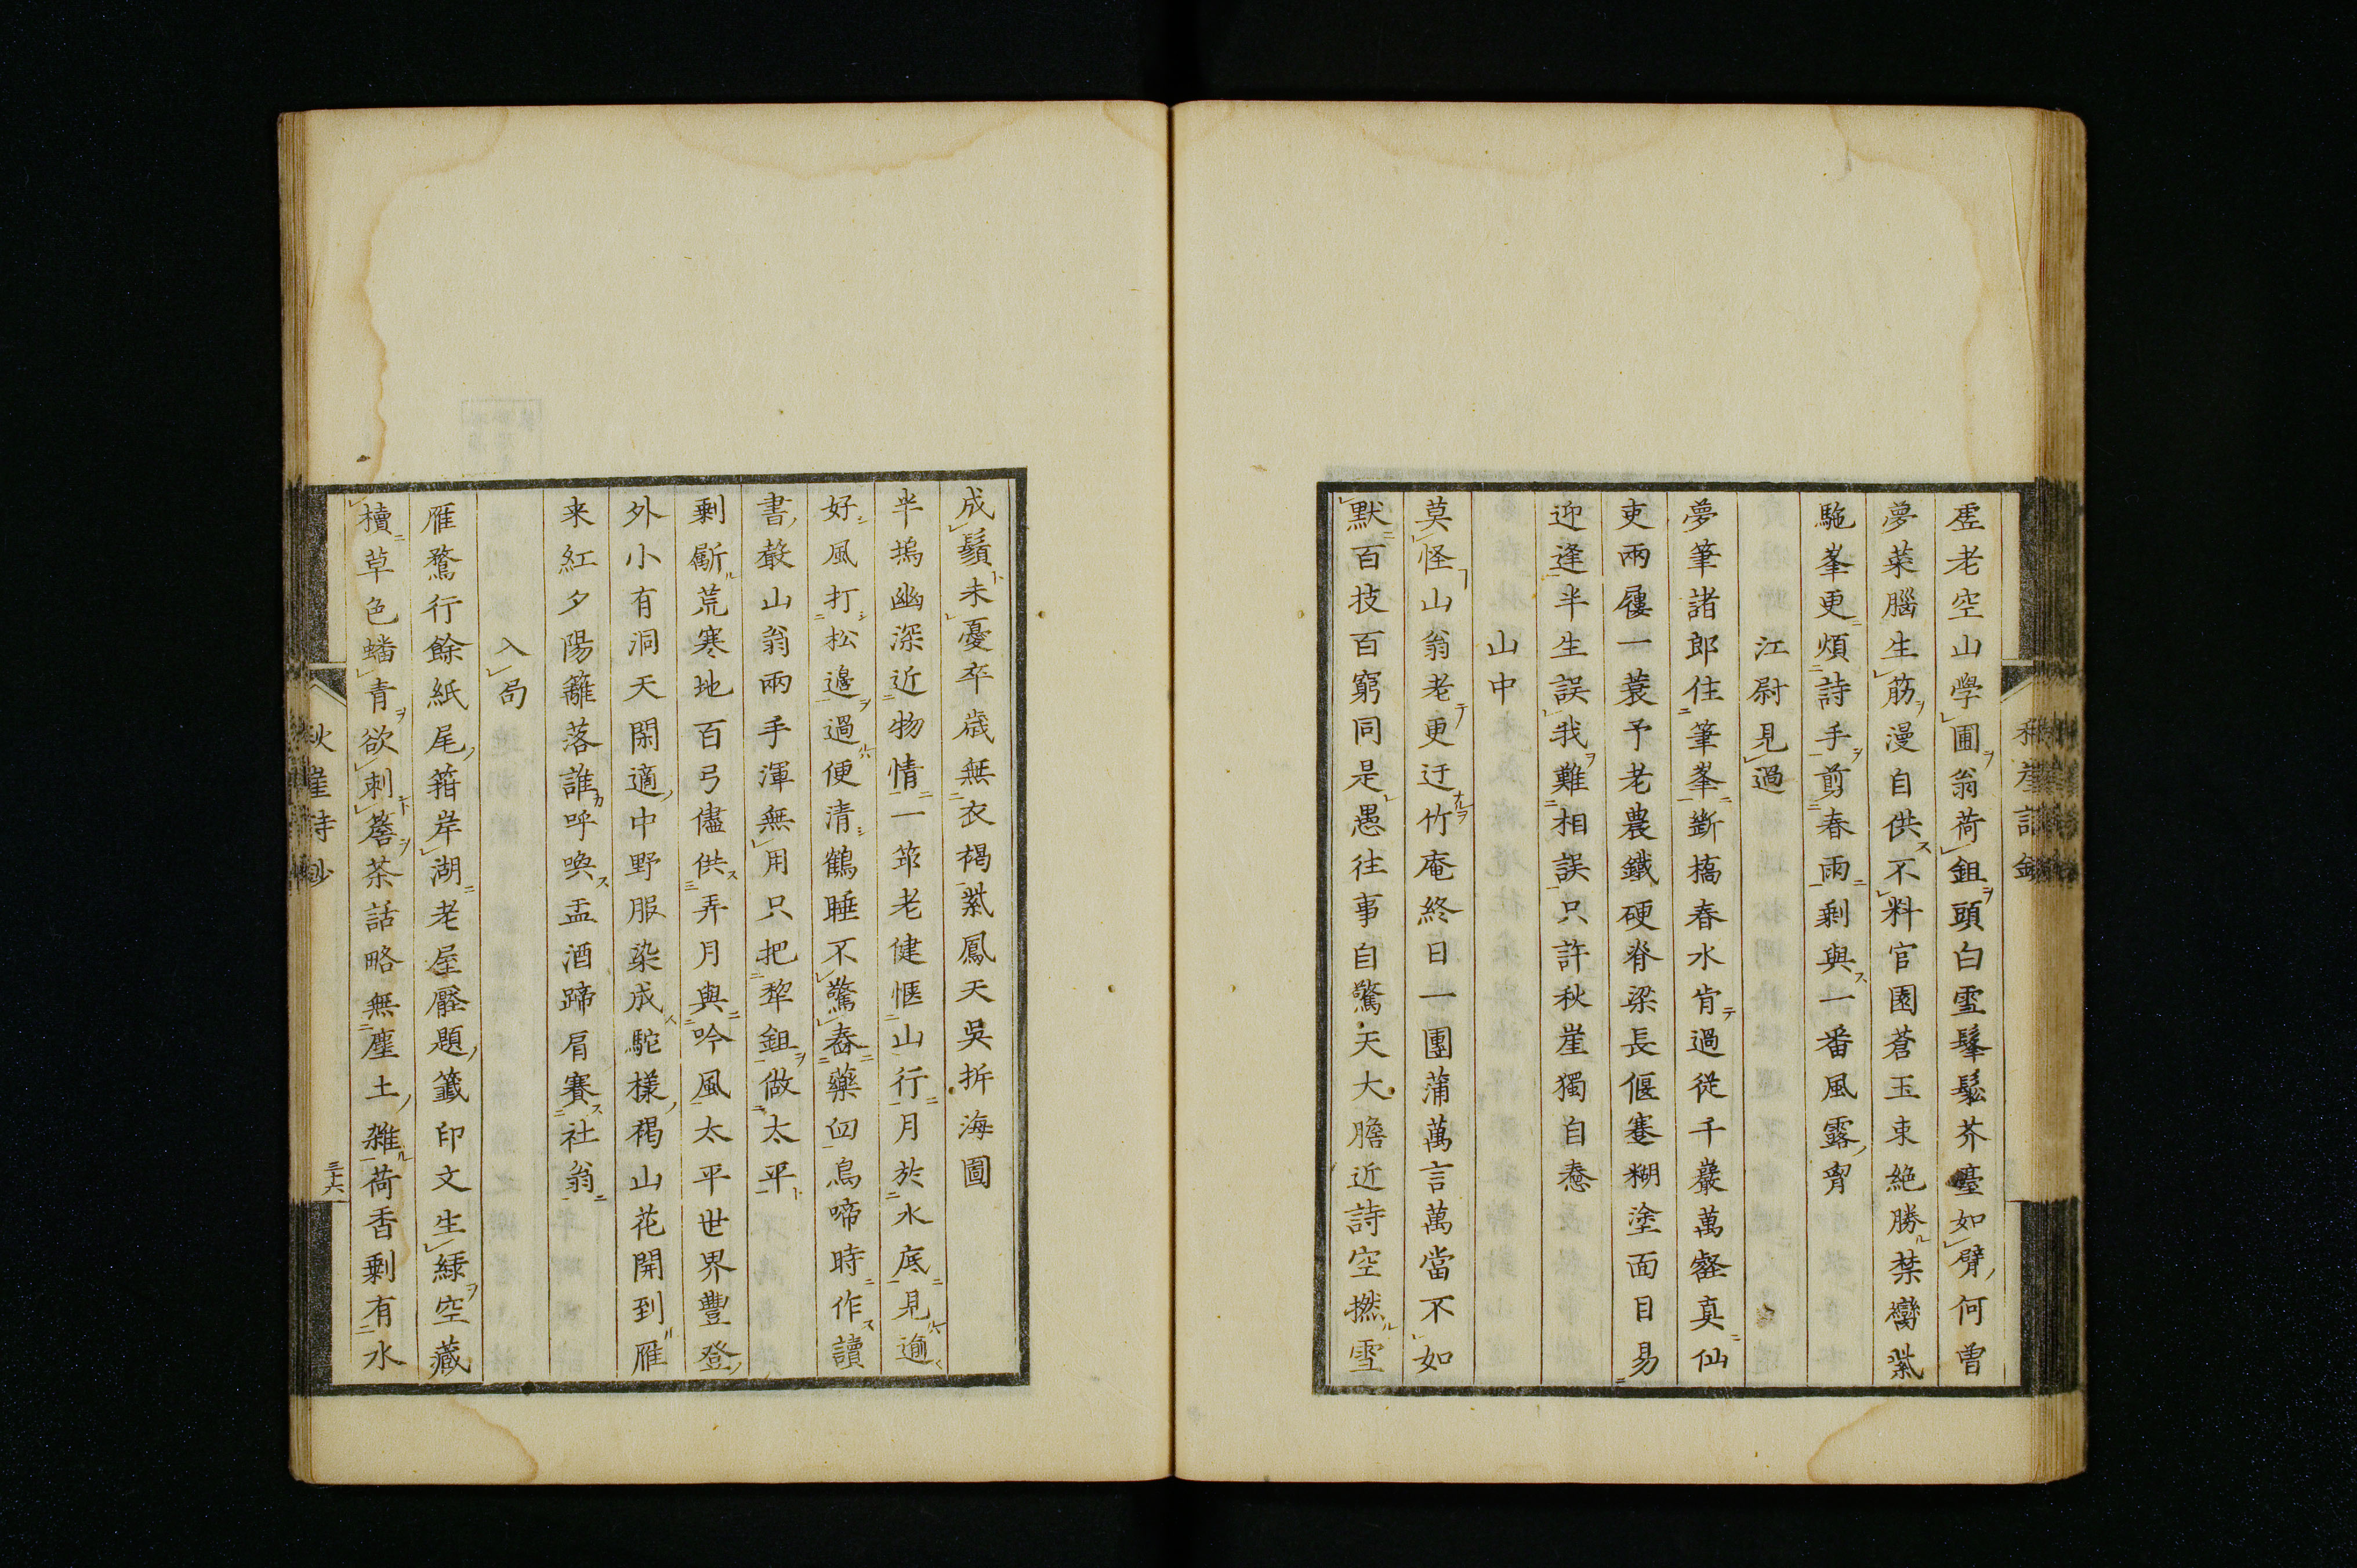 秋崖詩鈔
虛老空山學圃翁荷鉏頭白雪髼鬆芥薹如臂何曽
夢菜腦生筋漫自供不料官園蒼玉束絶勝禁臠紫
駞峯更煩詩手剪春雨剩與一番風露胷
江尉見過
夢筆諸郎住筆峯斷橋春水肯過從千巖萬壑真仙
吏兩屨一蓑予老農鐵硬脊梁長偃蹇糊塗面目易
迎逢半生誤我難相誤只許秋崖獨自憃
山中
莫怪山翁老更迂竹庵終日一團蒲萬言萬當不如
默百技百窮同是愚往事自驚天大膽近詩空撚雪
成鬚未憂卒歳無衣褐紫鳳天吳拆海圖
半塢幽深近物情一笻老健愜山行月於水底見逾
好風打松邉過便清鶴睡不驚舂藥臼鳥啼時作讀
書聲山翁兩手渾無用只把犂鉏做太平
剩斸荒寒地百弓儘供弄月與吟風太平世界豐登
外小有洞天閑適中野服染成駝様褐山花開到雁
来紅夕陽籬落誰呼喚盂酒蹄肩賽社翁
入局
雁鶩行餘紙尾箝岸湖老屋壓題籤印文生緑空藏
櫝草色蟠青欲刺簷茶話略無塵土雑荷香剩有水
秋崖詩鈔
三十六